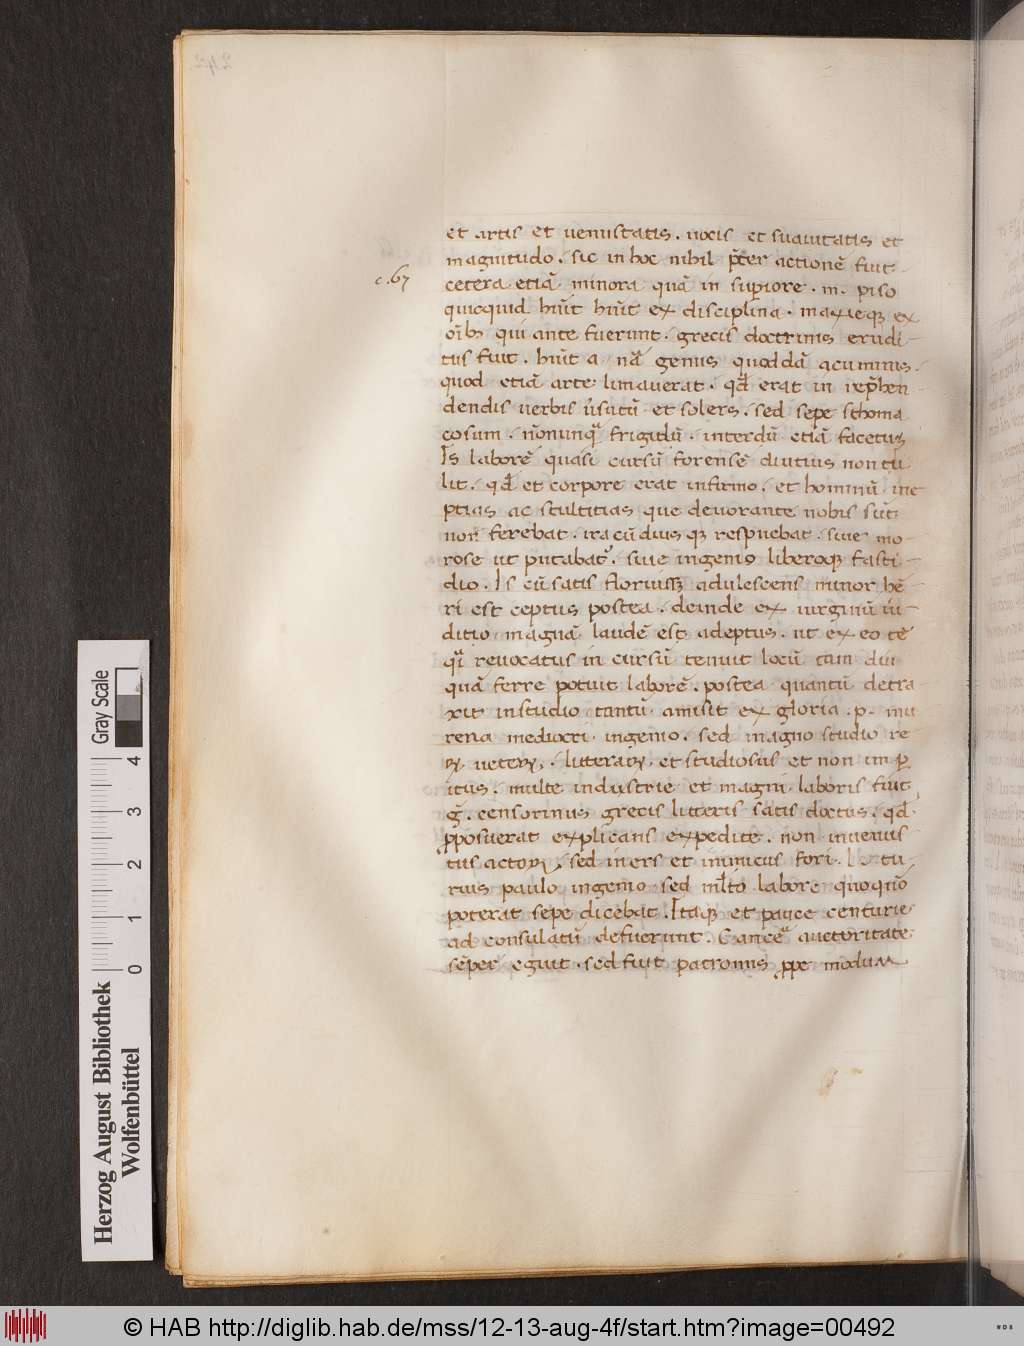 et artis et uenustatis. uocis et suauitatis et
magnitudo. sic in hoc nihil p̄ter actionē fuit
c. 67
cetera etiā minora quā in superiore. m. piso
quicquid hūit hūit ex disciplina. maxīeq; ex
oībꝫ qui ante fuerunt. grecis doctrinis erudi-
tus fuit. hūit a nā genus quoddā acuminis.
quod etiā arte limauerat. qđ erat in rep̄hen
dendis uerbis ūsutū et solers. sed sepe sthoma
cosum. nōnunqͣ frigidū. interdū etiā facetus
Is laborē quasi cursū forensē diutius non tu
lit. qđ et corpore erat infirmo. et hominū ine
ptias ac stultitias que deuorante nobis sūt
non ferebat. iracūdius q; respuebat. siue mo-
rose ut putabatᷣ. siue ingenio liberoq; fasti-
dio. Is cū satis floruissꝫ adulescens minor hē-
ri est ceptus postea. deinde ex uirginū iu-
ditio magnā laudē est adeptus. ut ex eo tē
qͣi reuocatus in cursū tenuit locū tam diu
quā ferre potuit laborē. postea quantū detra
xit instudio tantū amisit ex gloria. p. mu
rena mediocri ingenio. sed magno studio re
rꝝ ueterꝝ. litteratꝝ. et studiosus et non imp̄
itus. multe industrie et magni laboris fuit
g̃. censorinus grecis litteris satis doctus. qđ
ꝓposuerat explicans expedite. non inuenus
tus actorꝝ. sed iners et inimicus fori. L. tu-
rius paulo ingenio sed mlto labore quoquō
poterat sepe dicebat. Itaq; et pauce centurie
ad consulatū defuerunt. C. ance͛ auctoritate
sēper eguit. sed fuit patronus ꝓpe modum
Gray Scale
4
3
2
1
0
Herzog August Bibliothek
Wolfenbüttel
© HAB http://diglib.hab.de/mss/12-13-aug-4f/start.htm?image=00492